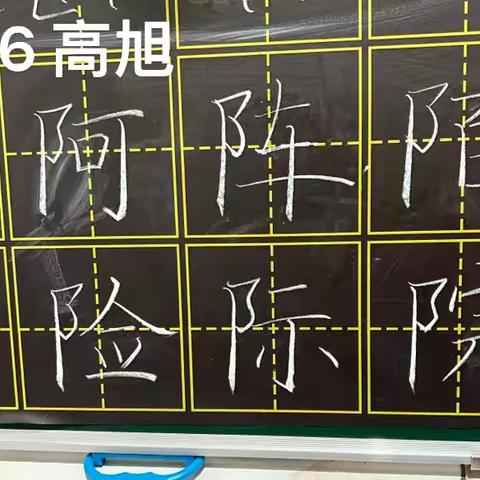 6 高旭
阿 阵
险 际 院